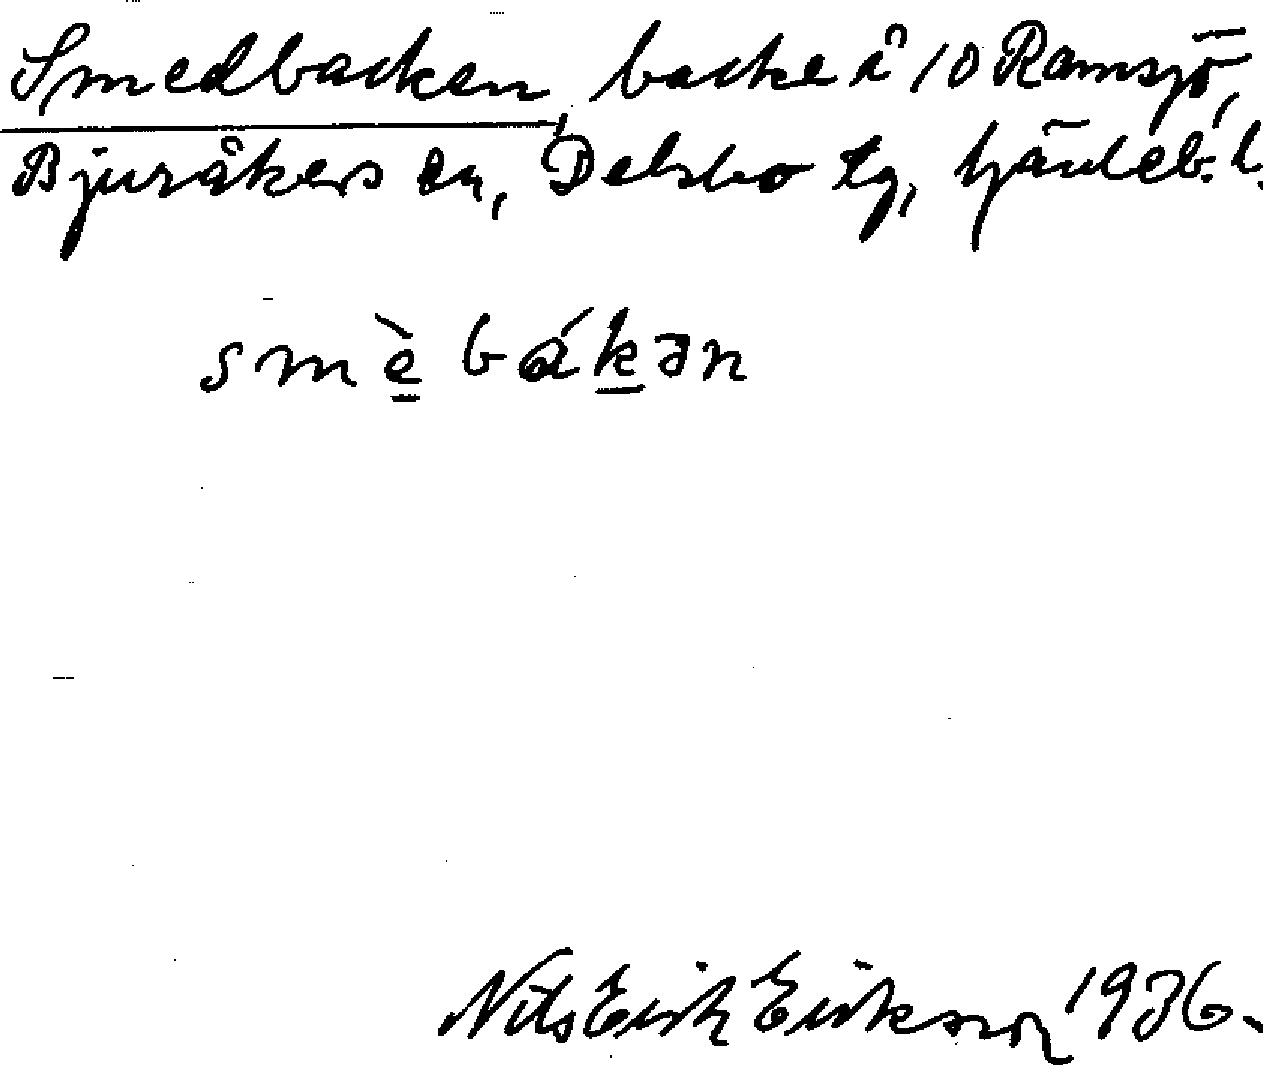 Smedbacken, backe å 10 Ramsjö,
Bjuråkers sn, Delsbo tg, Gävleb. l.
smè bákən
Nils Erik Eriksson 1936.